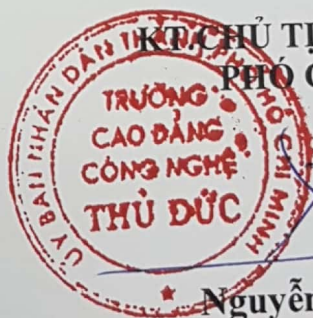 KT.CHỦ TỊ
PHÓ C
ỦY BAN NHÂN DÂN THÀNH PHỐ HỒ CHÍ MINH
TRƯỜNG
CAO ĐẲNG
CÔNG NGHỆ
THỦ ĐỨC
Nguyễn